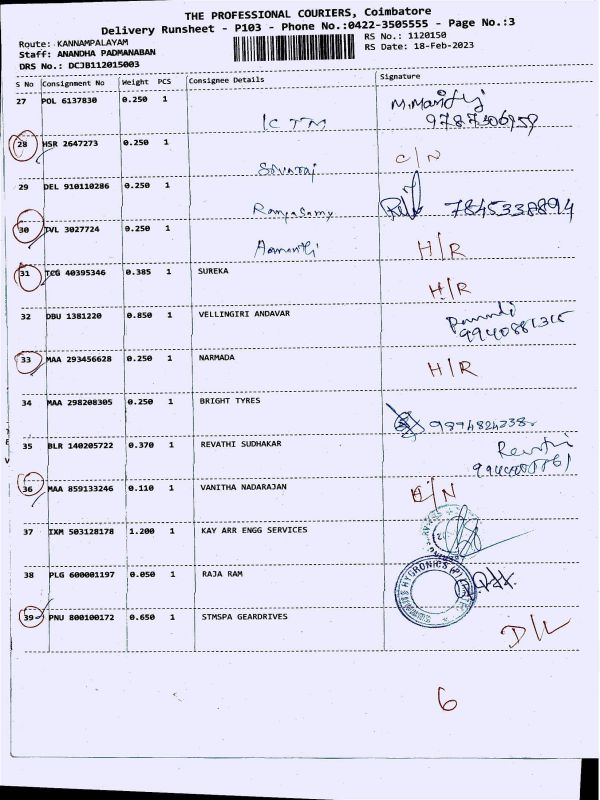 THE PROFESSIONAL COURIERS, Coimbatore
Delivery Runsheet - P103 - Phone No.:0422-3505555 - Page No.:3
Route: KANNAMPALAYAM
RS No.: 1120150
Staff: ANANDHA PADMANABAN
RS Date: 18-Feb-2023
DRS No.: DCJB112015003
S No Consignment No Weight PCS Consignee Details Signature
27 POL 6137830 0.250 1
ICTM 9787306959
28 HSR 2647273 0.250 1
C/N
29 DEL 910110286 0.250 1
Ramasamy 7845338894
30 TVL 3027724 0.250 1
H/R
31 TCG 40395346 0.385 1 SUREKA
H/R
32 DBU 1381220 0.850 1 VELLINGIRI ANDAVAR
33 MAA 293456628 0.250 1 NARMADA
H/R
34 MAA 298208305 0.250 1 BRIGHT TYRES
35 BLR 140205722 0.370 1 REVATHI SUDHAKAR
36 MAA 859133246 0.110 1 VANITHA NADARAJAN
C/N
37 IXM 503128178 1.200 1 KAY ARR ENGG SERVICES
38 PLG 600001197 0.050 1 RAJA RAM
39 PNU 800100172 0.650 1 STMSPA GEARDRIVES
D/L
6